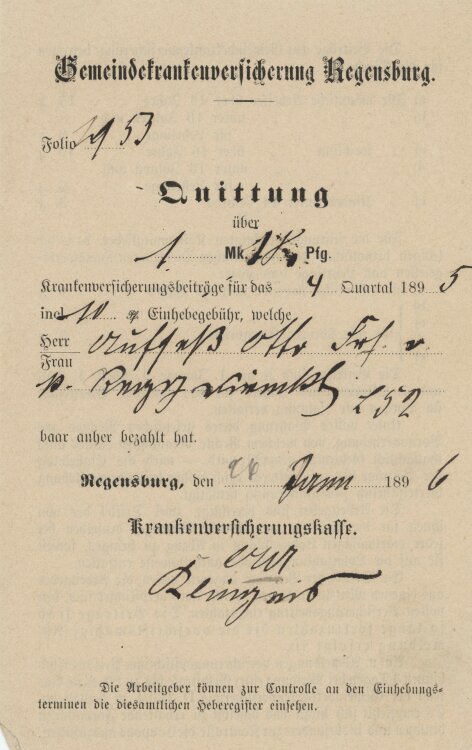 Gemeindekrankenversicherung Regensburg.
Folio 1953
Quittung
über
1 Mk. Pfg.
Krankenversicherungsbeiträge für das 4 Quartal 1895
incl. 10 ₰ Einhebegebühr, welche
Herr Aufseß Otto Frh. v.
Frau
L 52
baar anher bezahlt hat.
Regensburg, den 26 Jann 1896
Krankenversicherungskasse.
Die Arbeitgeber können zur Controlle an den Einhebungs-
terminen die diesamtlichen Heberegister einsehen.